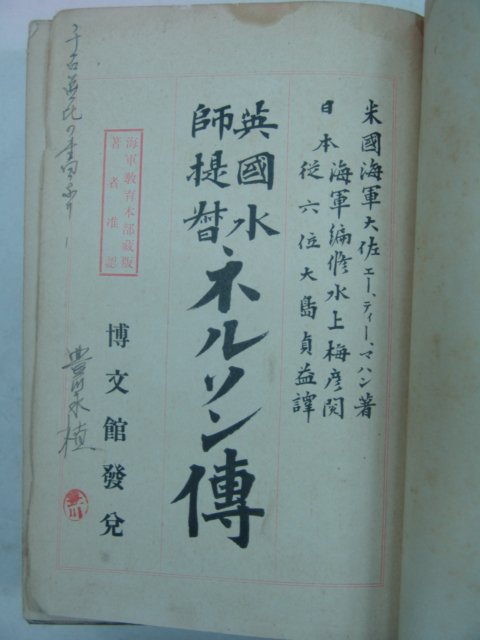 米國海軍大佐エー、ティー、マハン著
日本海軍編修水上梅彦閲
從六位大島貞益譯
英國水師提督ネルソン傳
海軍教育本部藏版
著者准認
博文館發兌